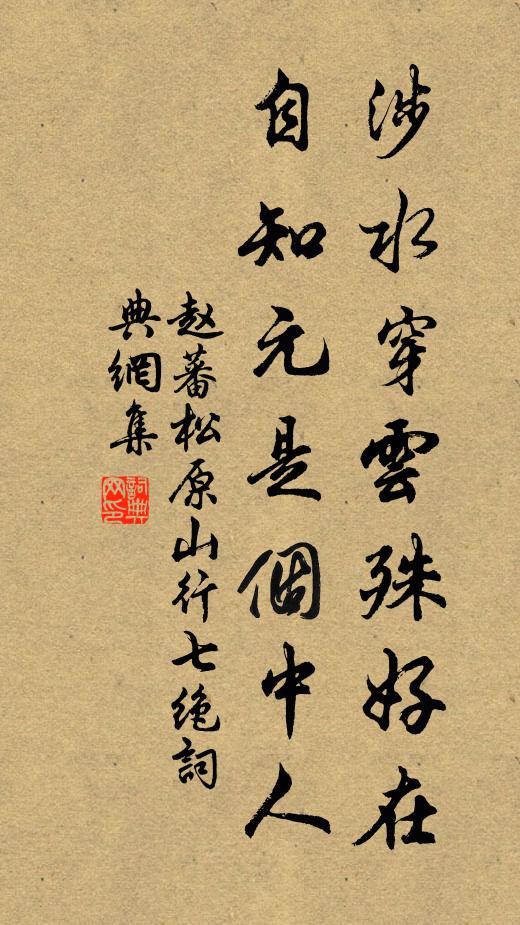 涉水穿雲殊好在
自知元是個中人
赵蕃松原山行七绝詞
典網集
詞典网印